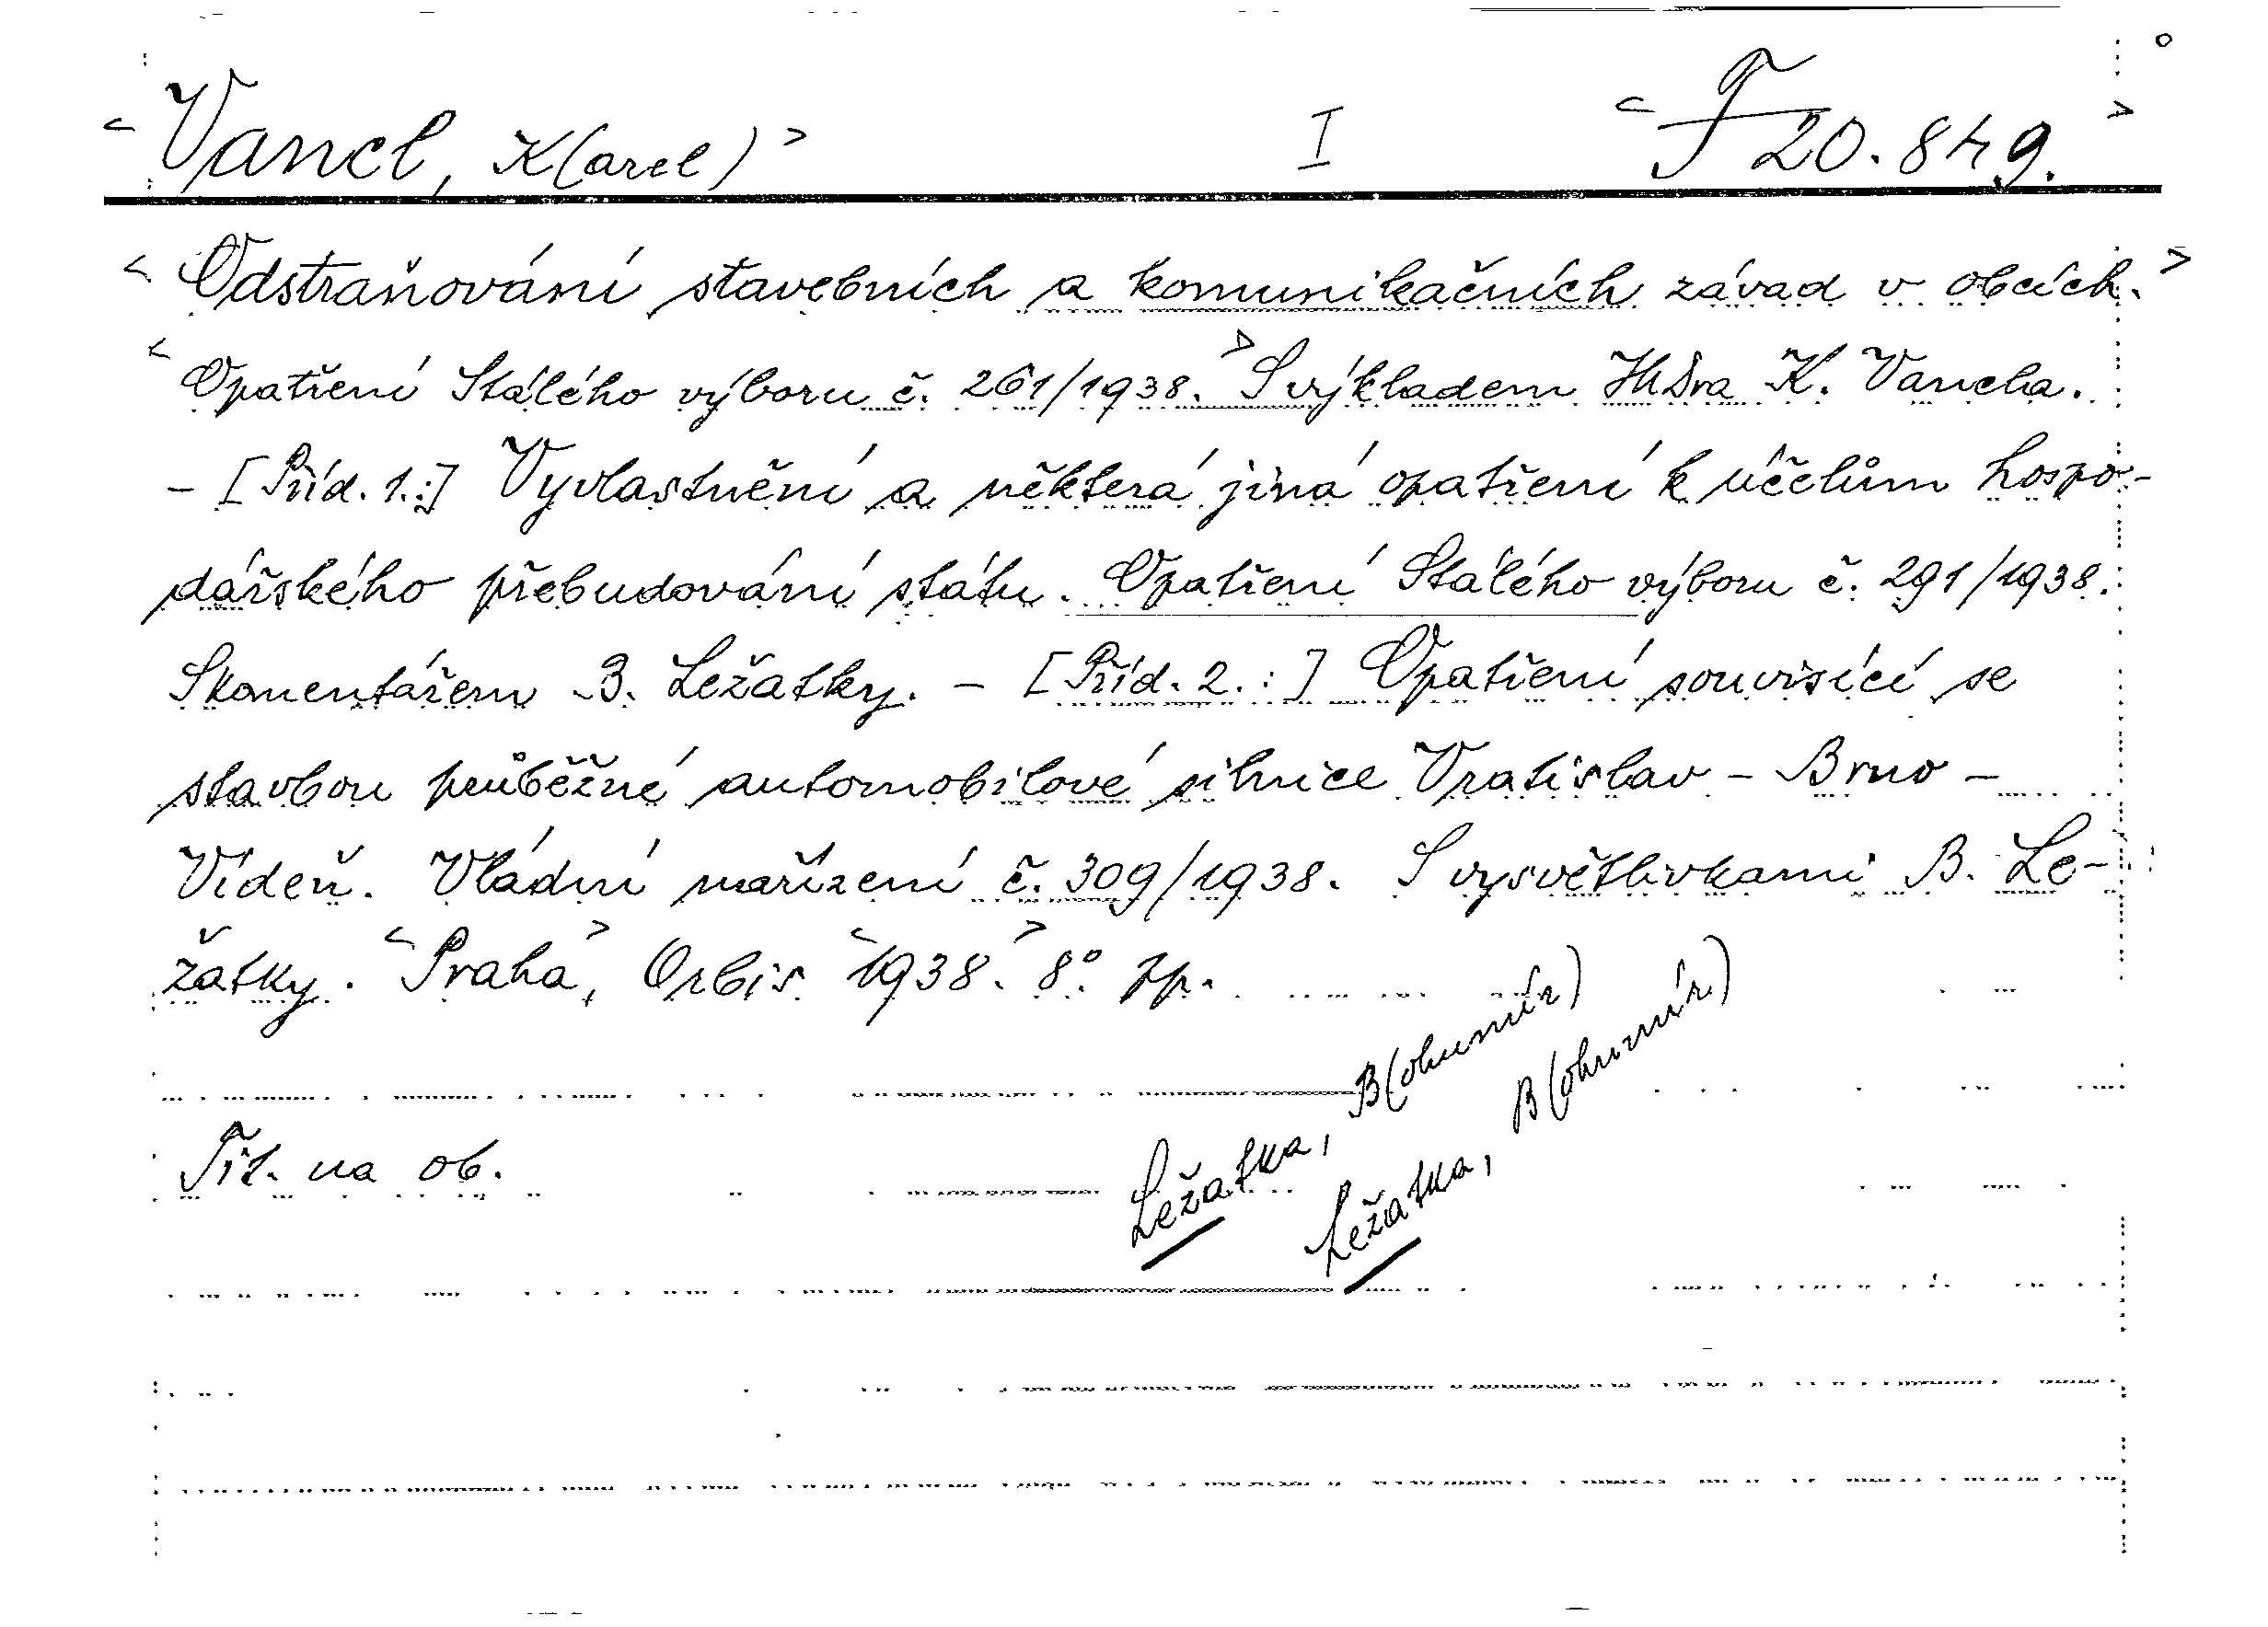 <Vancl, K(arel)> I <F 20.849.>
<Odstraňování stavebních a komunikačních závad v obcích.>
<Opatření Stálého výboru č. 261/1938.> S výkladem JUDra K. Vancla.
- [Příd. 1.:] Vyvlastnění a některá jiná opatření k účelům hospo-
dářského přebudování státu. Opatření Stálého výboru č. 291/1938.
S komentářem B. Ležatky. - [Příd. 2.:] Opatření souvisící se
stavbou průběžné automobilové silnice Vratislav - Brno -
Vídeň. Vládní nařízení č. 309/1938. S vysvětlivkami B. Le-
žatky. <Praha>, Orbis <1938.> 8° pp.
Tit. na ob.
Ležatka, B(ohumír)
Ležatka, B(ohumír)